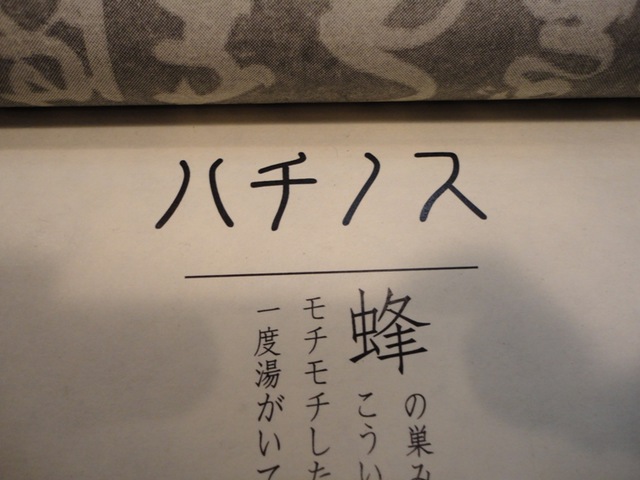 ハチノス
蜂の巣み
こうい
モチモチした
一度湯がいて